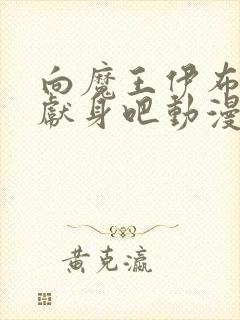 向魔王伊布
獻身吧動漫
黄克瀛